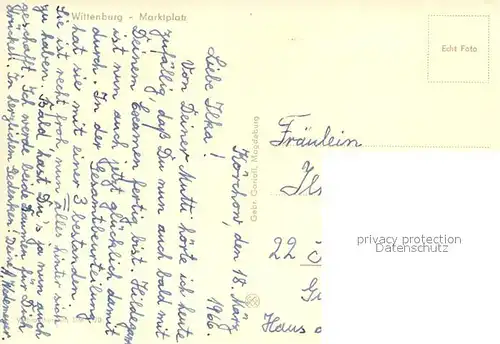 Wittenburg - Marktplatz
Körchow, den 18. März
1966.
Liebe Ilka!
Von Deiner Mutti hörte ich heute
zufällig, daß Du nun auch bald mit
Deinem Examen fertig bist. Hildegard
ist nun auch jetzt glücklich damit
durch. In der Gesamtbeurteilung
hat sie mit einer 3 bestanden.
Sie ist recht froh, nun alles hinter sich
zu haben. Bald hast Du's ja nun auch
geschafft. Ich werde beide Daumen für Dich
drücken! In herzlichem Gedenken! Deine
Gebr. Garloff, Magdeburg
Echt Foto
Fräulein
Ils
22
Haus
privacy protection
www.ansichtskarten-center.de